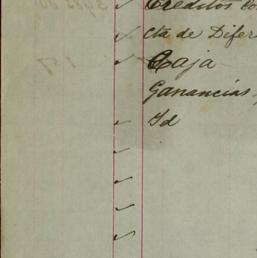 Créditos
Cta de Difer
Caja
Ganancias
Id